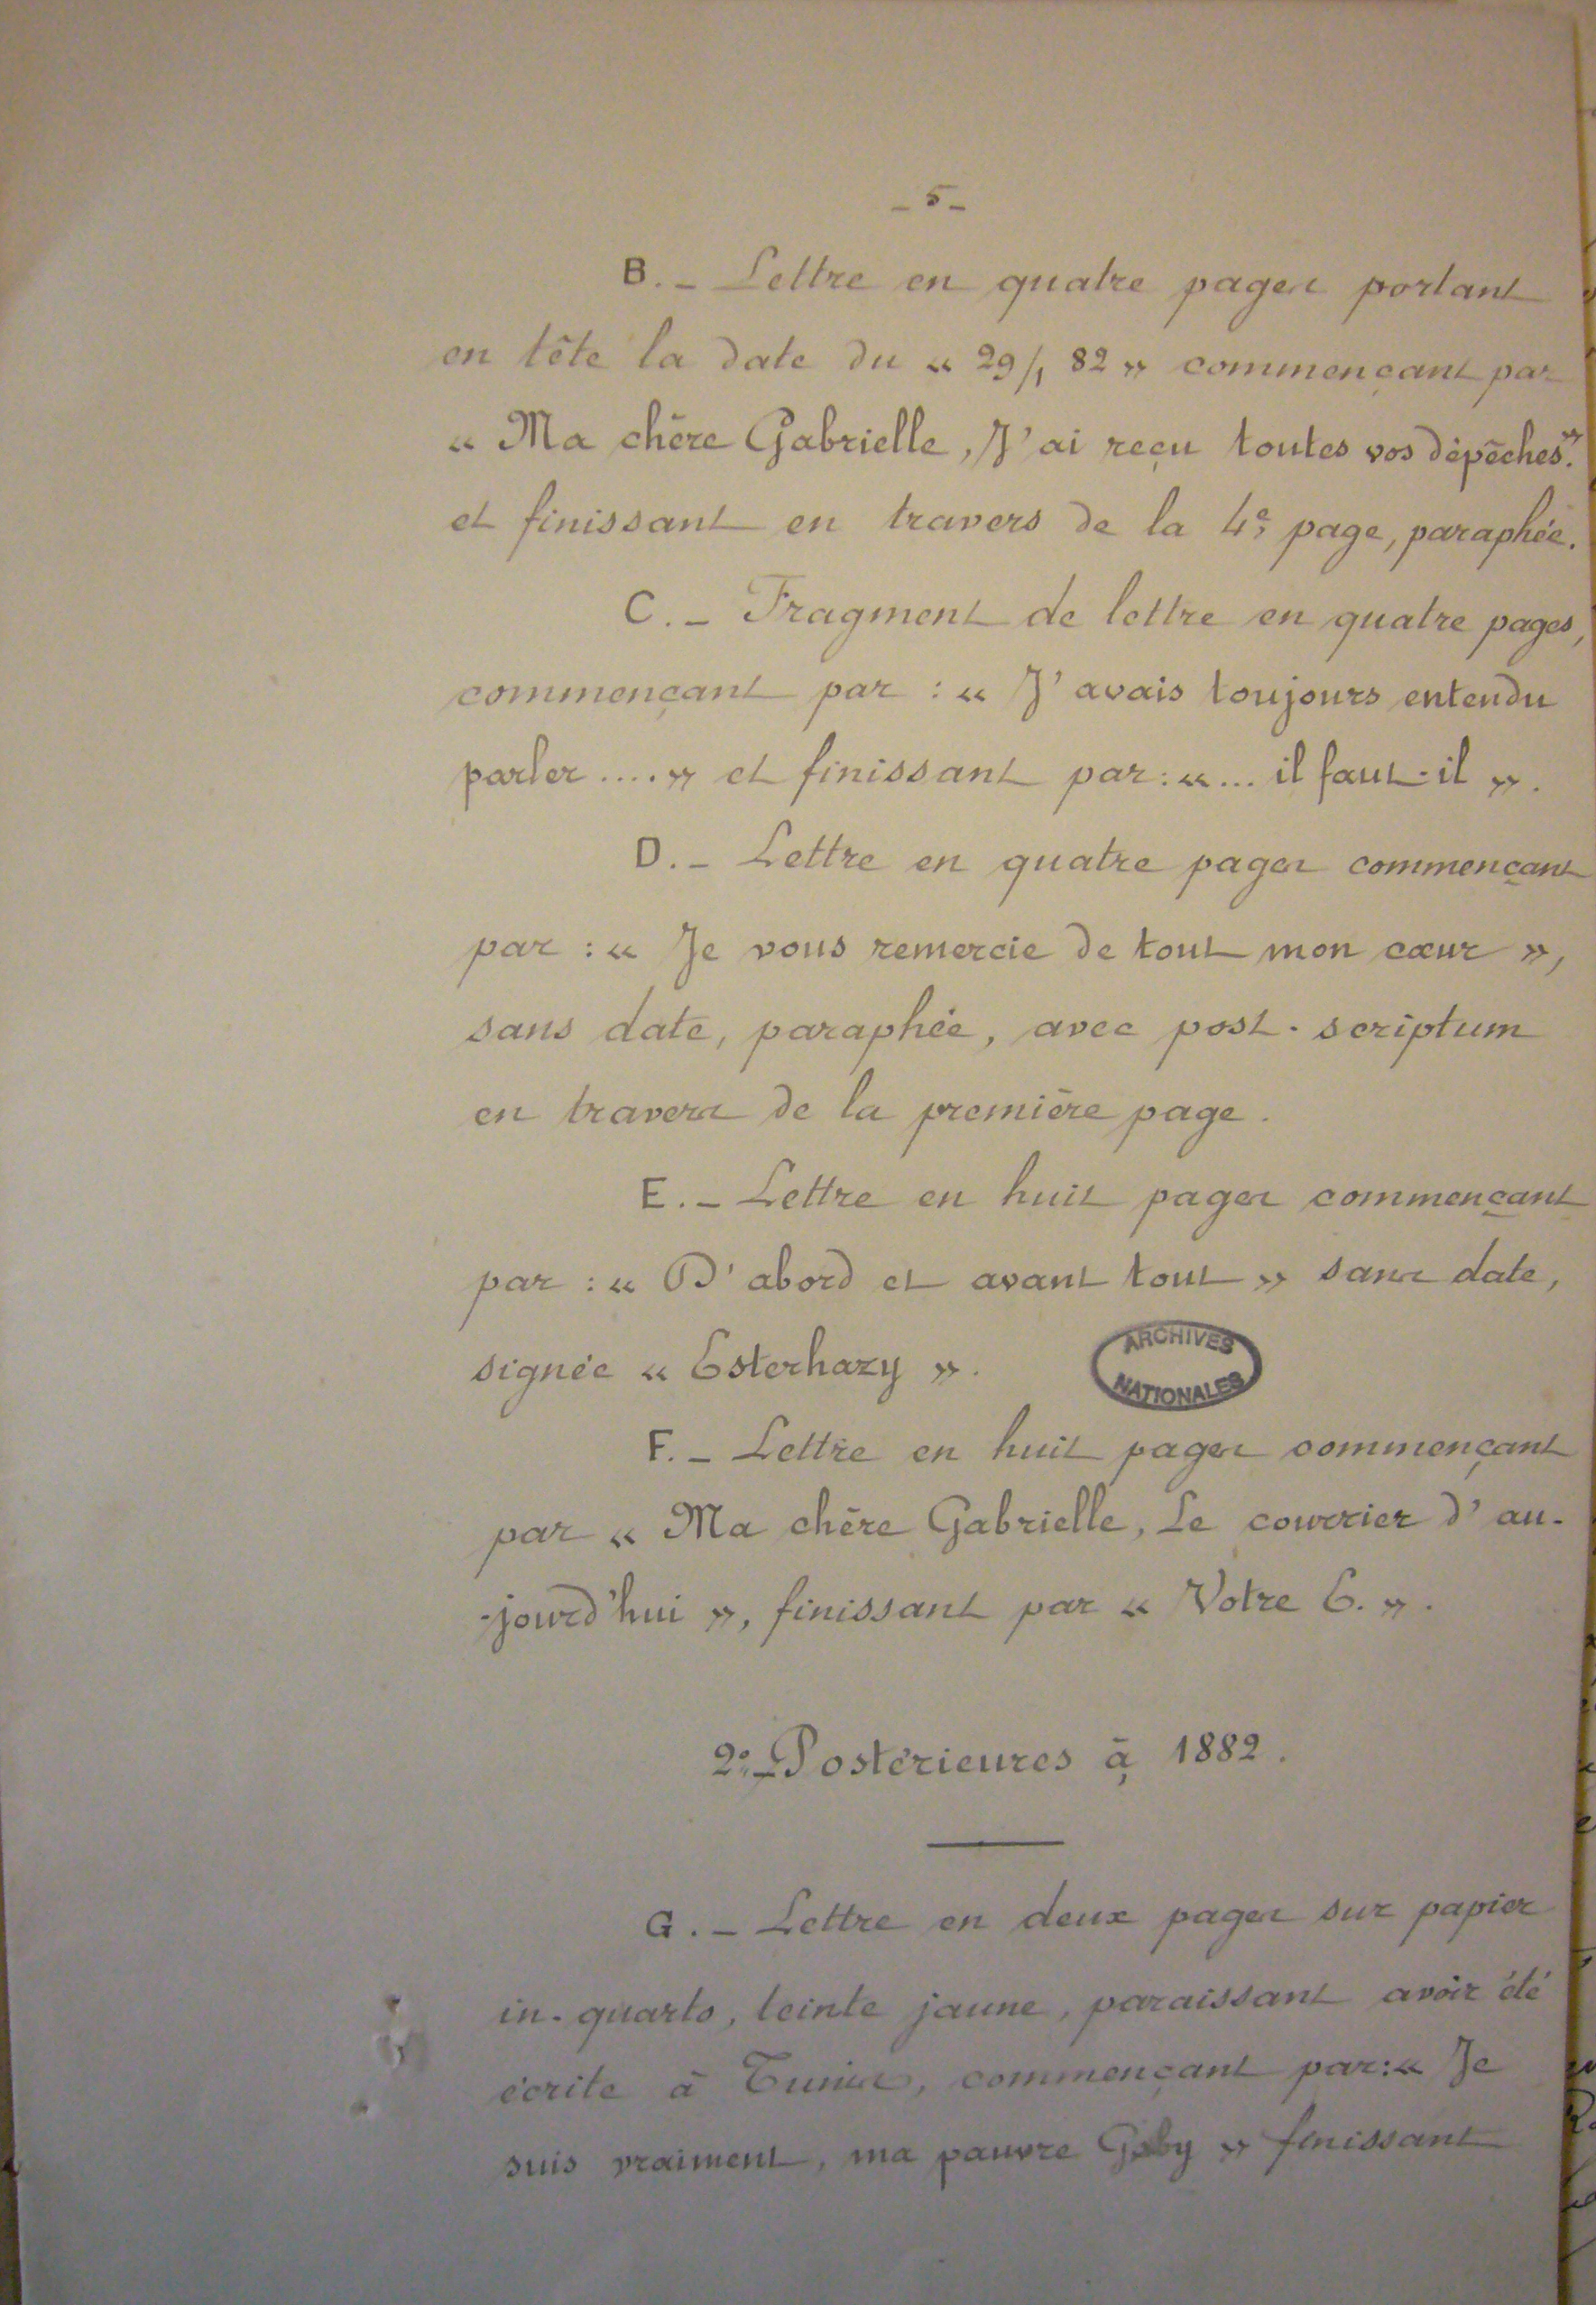 _ 5 _
B. _ Lettre en quatre pages portant
en tête la date du « 29/1 82 » commençant par
« Ma chère Gabrielle, J'ai reçu toutes vos dépêches. »
et finissant en travers de la 4e page, paraphée.
C. _ Fragment de lettre en quatre pages,
commençant par : « J'avais toujours entendu
parler .... » et finissant par : « ... il faut-il ».
D. _ Lettre en quatre pages commençant
par : « Je vous remercie de tout mon cœur »,
sans date, paraphée, avec post-scriptum
en travers de la première page.
E. _ Lettre en huit pages commençant
par : « D'abord et avant tout » sans date,
signée « Esterhazy ».
ARCHIVES
NATIONALES
F. _ Lettre en huit pages commençant
par « Ma chère Gabrielle, Le courrier d'au-
-jourd'hui », finissant par « Votre E. ».
2° _ Postérieures à 1882.
G. _ Lettre en deux pages sur papier
in-quarto, teinte jaune, paraissant avoir été
écrite à Tunis, commençant par : « Je
suis vraiment, ma pauvre Gaby » finissant